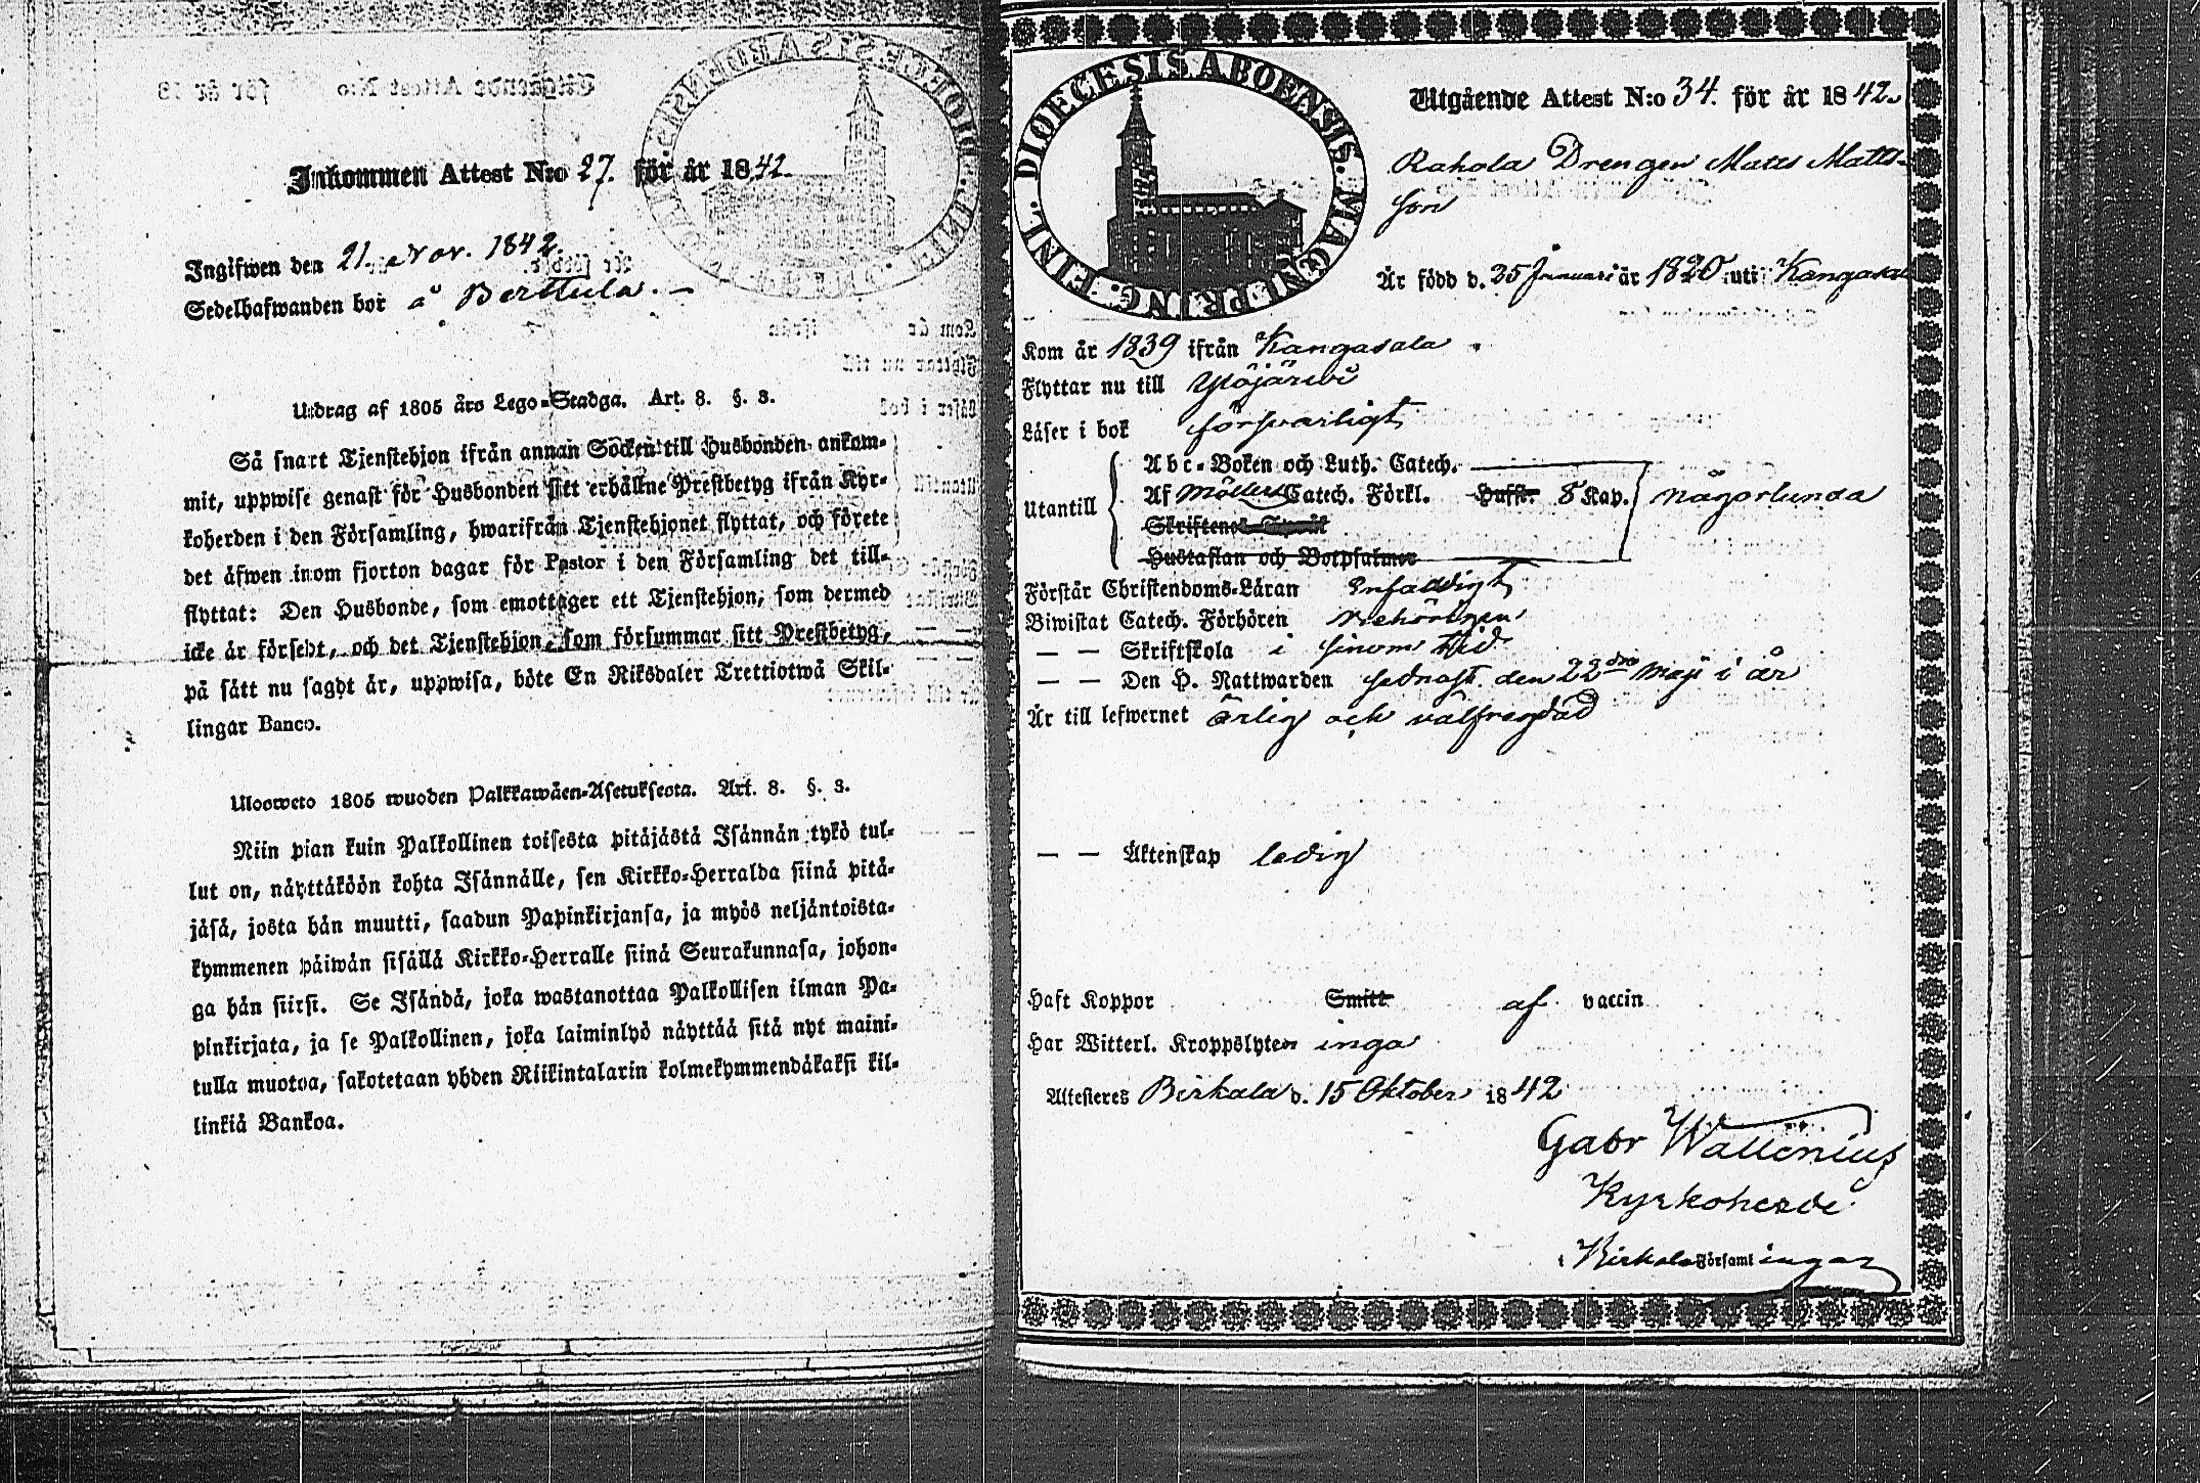 Inkommen Attest N:o 27. för år 1842.
Ingifwen den 21. Nov. 1842.
Sedelhafwanden bor å Berttula. –
Utdrag af 1805 års Lego-Stadga. Art. 8. §. 3.
Så snart Tjenstehjon ifrån annan Socken till Husbonden ankom-
mit, uppwise genast för Husbonden sitt erhållne Prestbetyg ifrån Kyr-
koherden i den Församling, hwarifrån Tjenstehjonet flyttat, och förete
det äfwen inom fjorton dagar för Pastor i den Församling det till-
flyttat: Den Husbonde, som emottager ett Tjenstehjon, som dermed
icke är försedt, och det Tjenstehjon, som försummar sitt Prestbetyg,
på sätt nu sagdt är, uppwisa, böte En Riksdaler Trettiotwå Skil-
lingar Banco.
Ulosweto 1805 wuoden Palkkawäen-Asetuksesta. Art. 8. §. 3.
Niin pian kuin Palkollinen toisesta pitäjästä Isännän tykö tul-
lut on, näyttäköön kohta Isännälle, sen Kirkko-Herralda siinä pitä-
jäsä, josta hän muutti, saadun Papinkirjansa, ja myös neljäntoista-
kymmenen päiwän sisällä Kirkko-Herralle siinä Seurakunnasa, johon-
ga hän siirsi. Se Isändä, joka wastanottaa Palkollisen ilman Pa-
pinkirjata, ja se Palkollinen, joka laiminlyö näyttää sitä nyt maini-
tulla muotoa, sakotetaan yhden Riikintalarin kolmekymmendäkaksi kil-
linkiä Bankoa.
FINL. DIOECESIS ABOENSIS. MAGNI PRINC.
Utgående Attest N:o 34. för år 1842.
Rahola Drengen Matts Matts-
son
Är född d. 25 Januari år 1820 uti Kangasala
Kom år 1839 ifrån Kangasala
Flyttar nu till Ylöjärwi
Läser i bok försvarligt
Utantill
Abc-Boken och Luth. Catech.
Af Möllers Catech. Förkl. Hufst. 8 Kap. någorlunda
Skriftenes Språk
Hustaflan och Botpsalmer
Förstår Christendoms-Läran enfaldigt
Biwistat Catech. Förhören behörigen
– – Skriftskola i sinom tid
– – Den H. Nattwarden sednast den 22dra Maji i år
Är till lefwernet ärlig och välfregdad
– – Äktenskap ledig
Haft Koppor Smitt af vaccin
Har Witterl. Kroppslyten inga
Attesteres Birkala d. 15 Oktober 1842
Gabr Wallenius
Kyrkoherde
i Birkala Församlingar